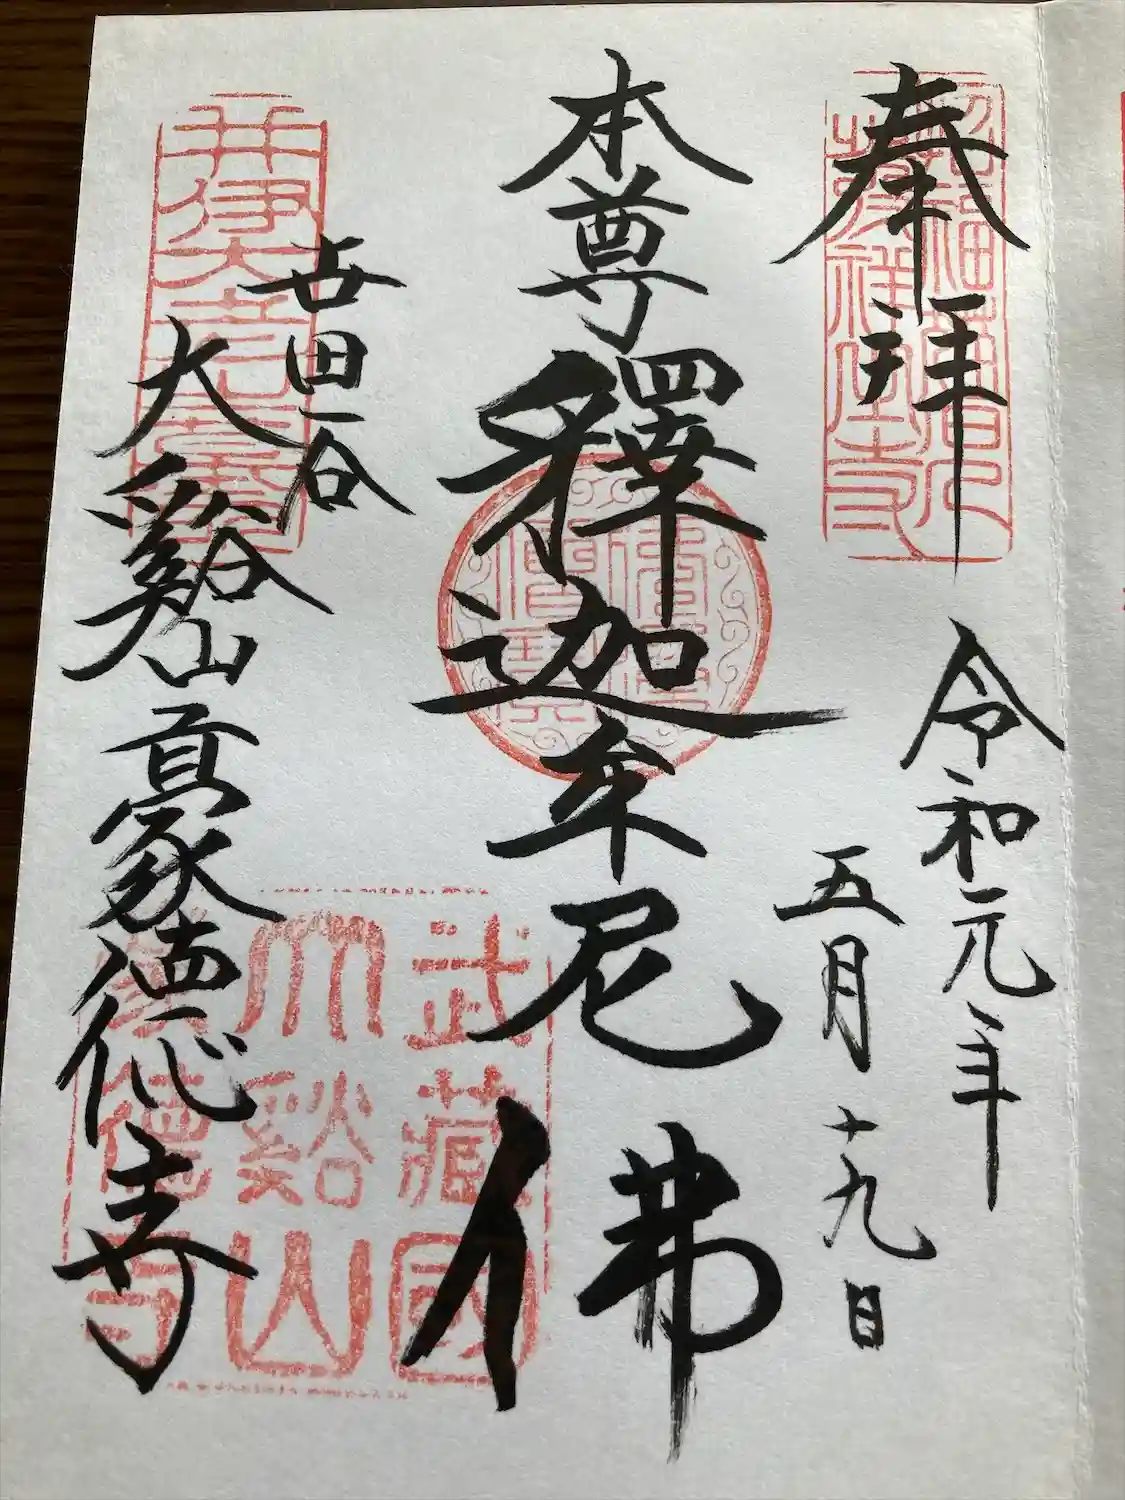 奉拝
令和元年
五月十九日
本尊釋迦牟尼佛
世田谷
大谿山豪徳寺
武藏國
大谿山
豪德寺